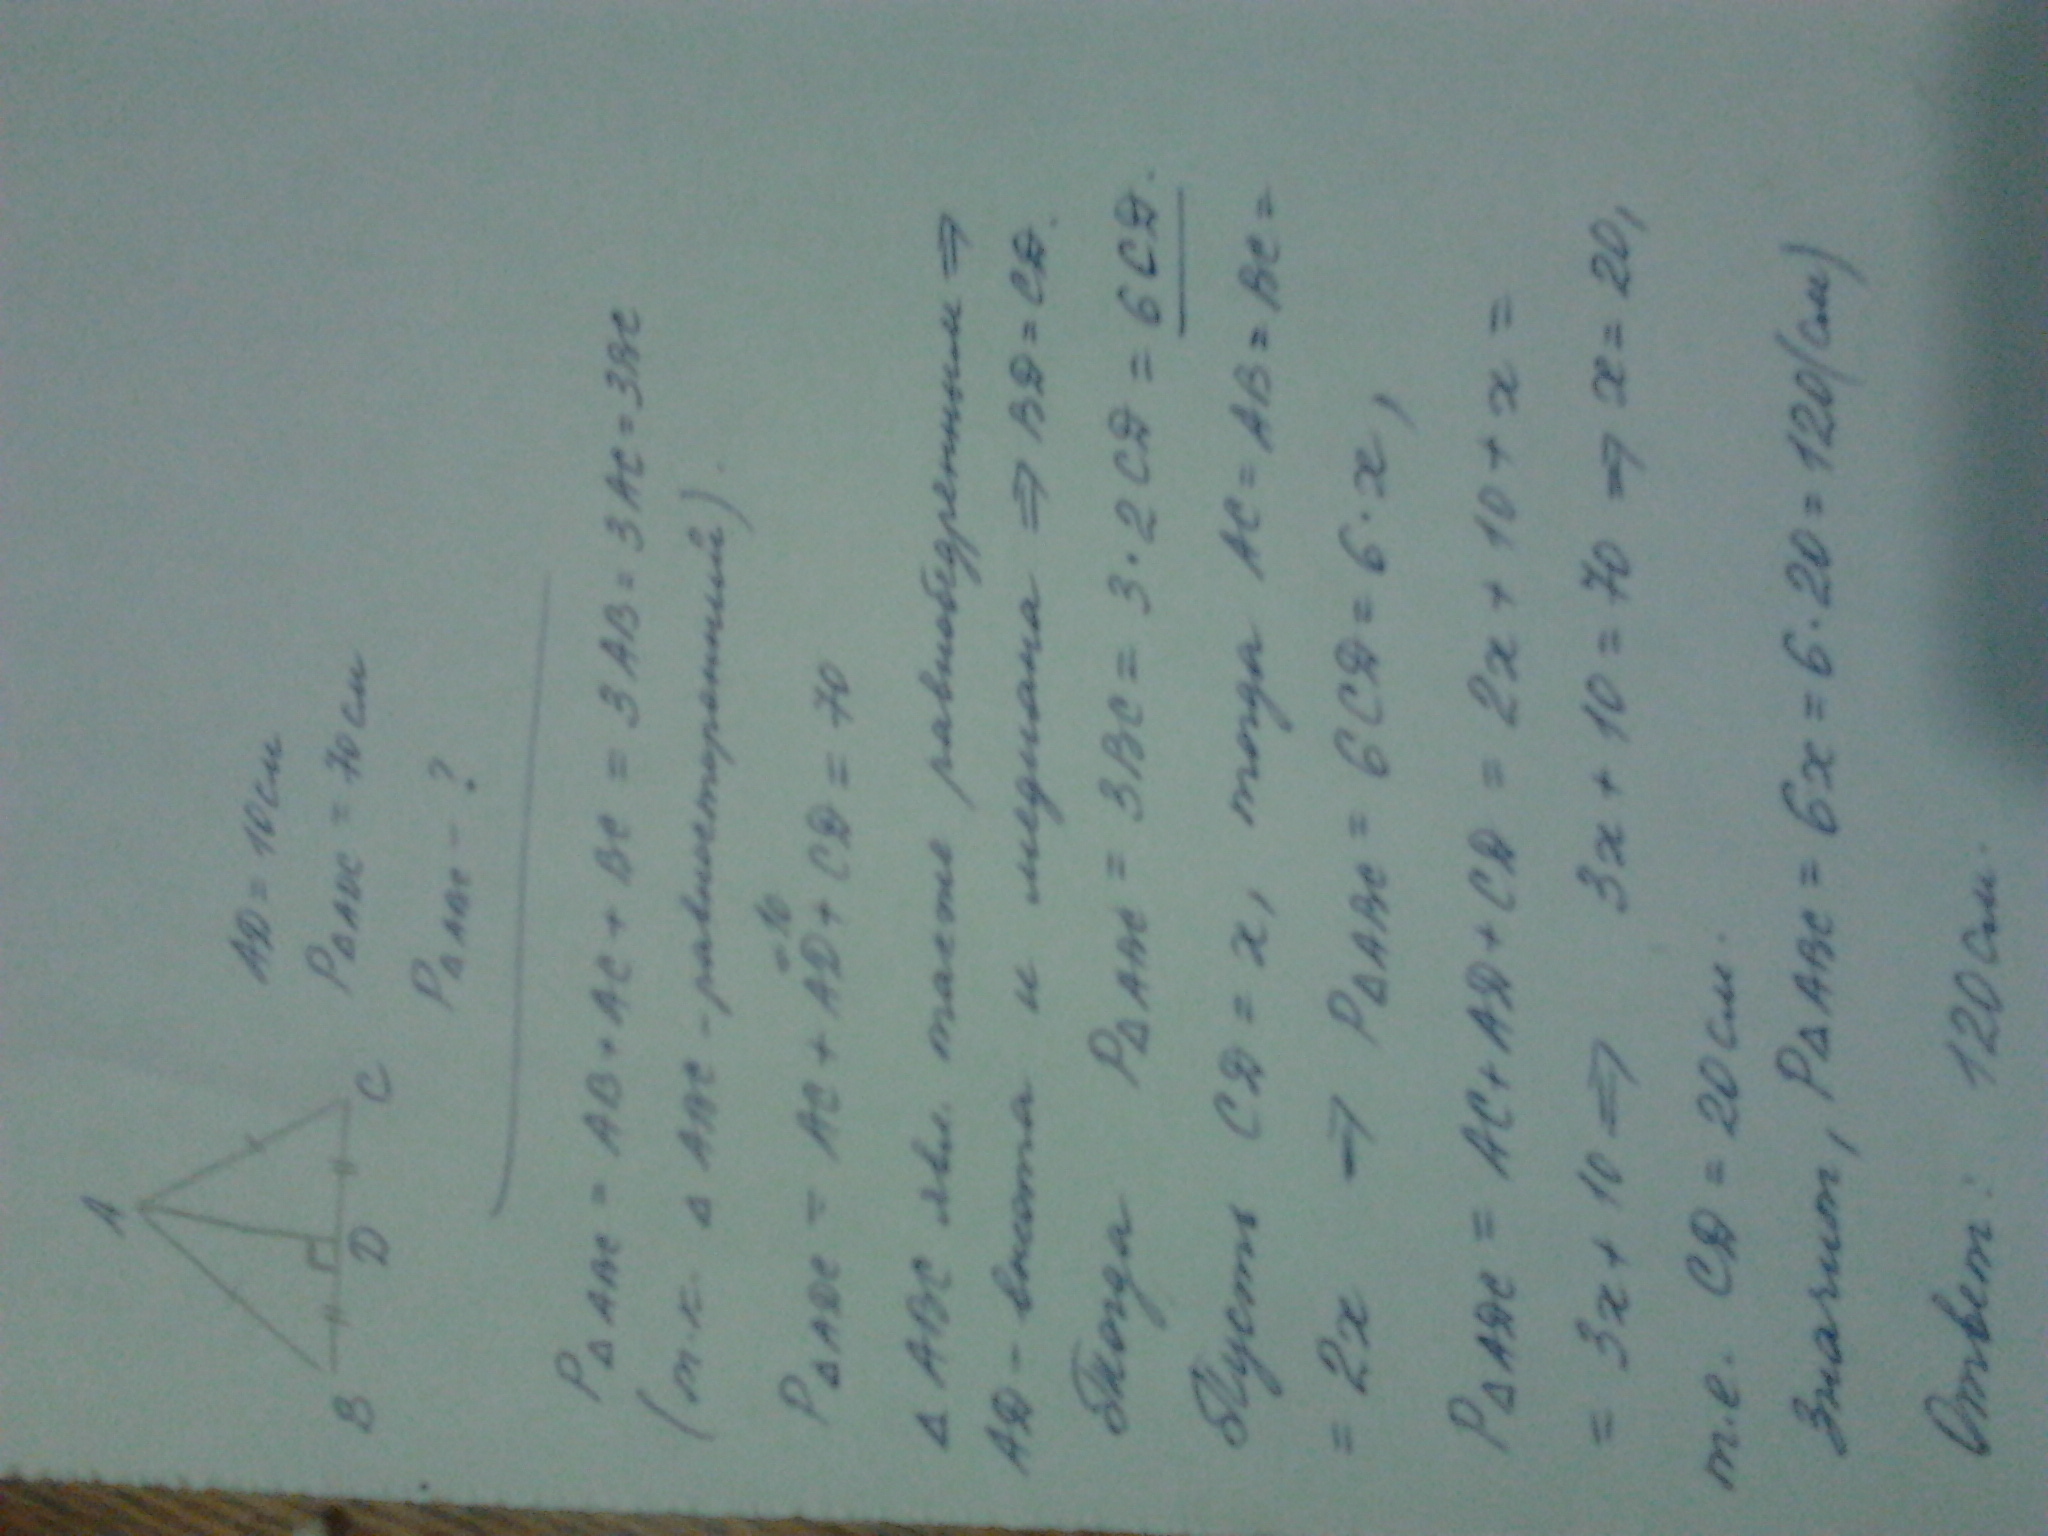 A
B
D
C
AD = 10 см
P△ADC = 70 см
P△ABC - ?
P△ABC = AB + AC + BC = 3AB = 3AC = 3BC
(т.к. △ABC - равносторонний).
P△ADC = AC + AD + CD = 70
= 10
△ABC явл. также равнобедренным ⇒
AD - высота и медиана ⇒ BD = CD.
Тогда P△ABC = 3BC = 3·2CD = 6CD.
Пусть CD = x, тогда AC = AB = BC =
= 2x ⇒ P△ABC = 6CD = 6·x,
P△ADC = AC + AD + CD = 2x + 10 + x =
= 3x + 10 ⇒ 3x + 10 = 70 ⇒ x = 20,
т.е. CD = 20 см.
Значит, P△ABC = 6x = 6·20 = 120 (см)
Ответ: 120 см.